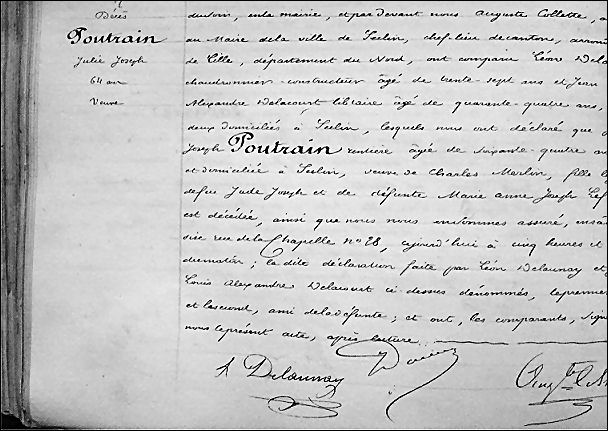 Décès
Poutrain
Julie Joseph
64 ans
Veuve
en la mairie, et par devant nous Auguste Collette,
au Maire de la ville de Seclin, chef-lieu de canton,
de Lille, département du Nord, ont comparu Léon
chaudronnier-constructeur âgé de trente-sept ans et Jean
Alexandre Delacourt, libraire âgé de quarante-quatre ans,
deux domiciliés à Seclin, lesquels nous ont déclaré que
Joseph Poutrain rentière âgée de soixante-quatre
et domiciliée à Seclin, veuve de Charles fille
de feu Jude Joseph et de défunte Marie Anne Joseph
est décédée, ainsi que nous nous en sommes assuré,
sise rue de la Chapelle n° 28, aujourd'hui à cinq heures et
du matin ; la dite déclaration faite par Léon Delaunay et
Louis Alexandre Delacourt ci-dessus dénommés, le premier
et le second, ami de la défunte ; et ont, les comparants,
nous le présent acte, après lecture.
Delaunay